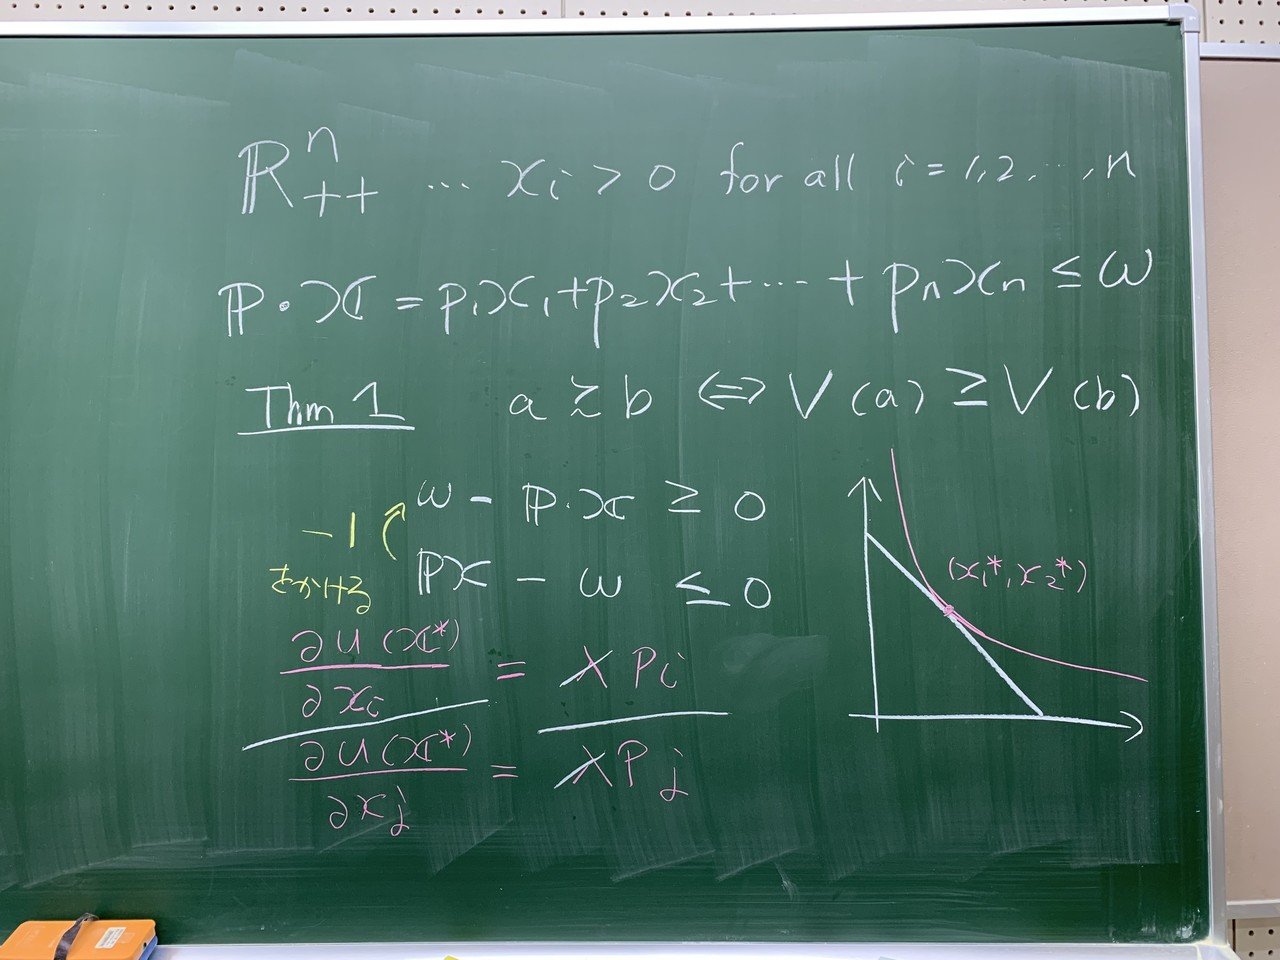 ℝⁿ₊₊ … xᵢ > 0 for all i = 1, 2, …, n
ℙ・𝕩 = p₁x₁ + p₂x₂ + … + pₙxₙ ≤ ω
Thm 1 a ≿ b ⇔ V(a) ≥ V(b)
ω - ℙ・𝕩 ≥ 0
-1
をかける
ℙ𝕩 - ω ≤ 0
(x₁*, x₂*)
∂u(𝕩*)/∂xᵢ = λpᵢ
∂u(𝕩*)/∂xⱼ = λpⱼ